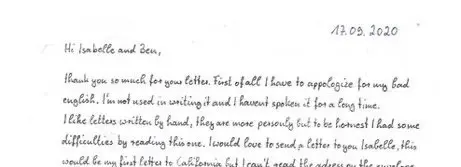 17.09.2020
Hi Isabelle and Ben,
thank you so much for your letter. First of all I have to appologize for my bad
english. I'm not used in writing it and I havent spoken it for a long time.
I like letters written by hand, they are more personly but to be hornest I had some
difficulties by reading this one. I would love to send a letter to you Isabelle, this
would be my first letter to California but I can't read the adress on the envelope